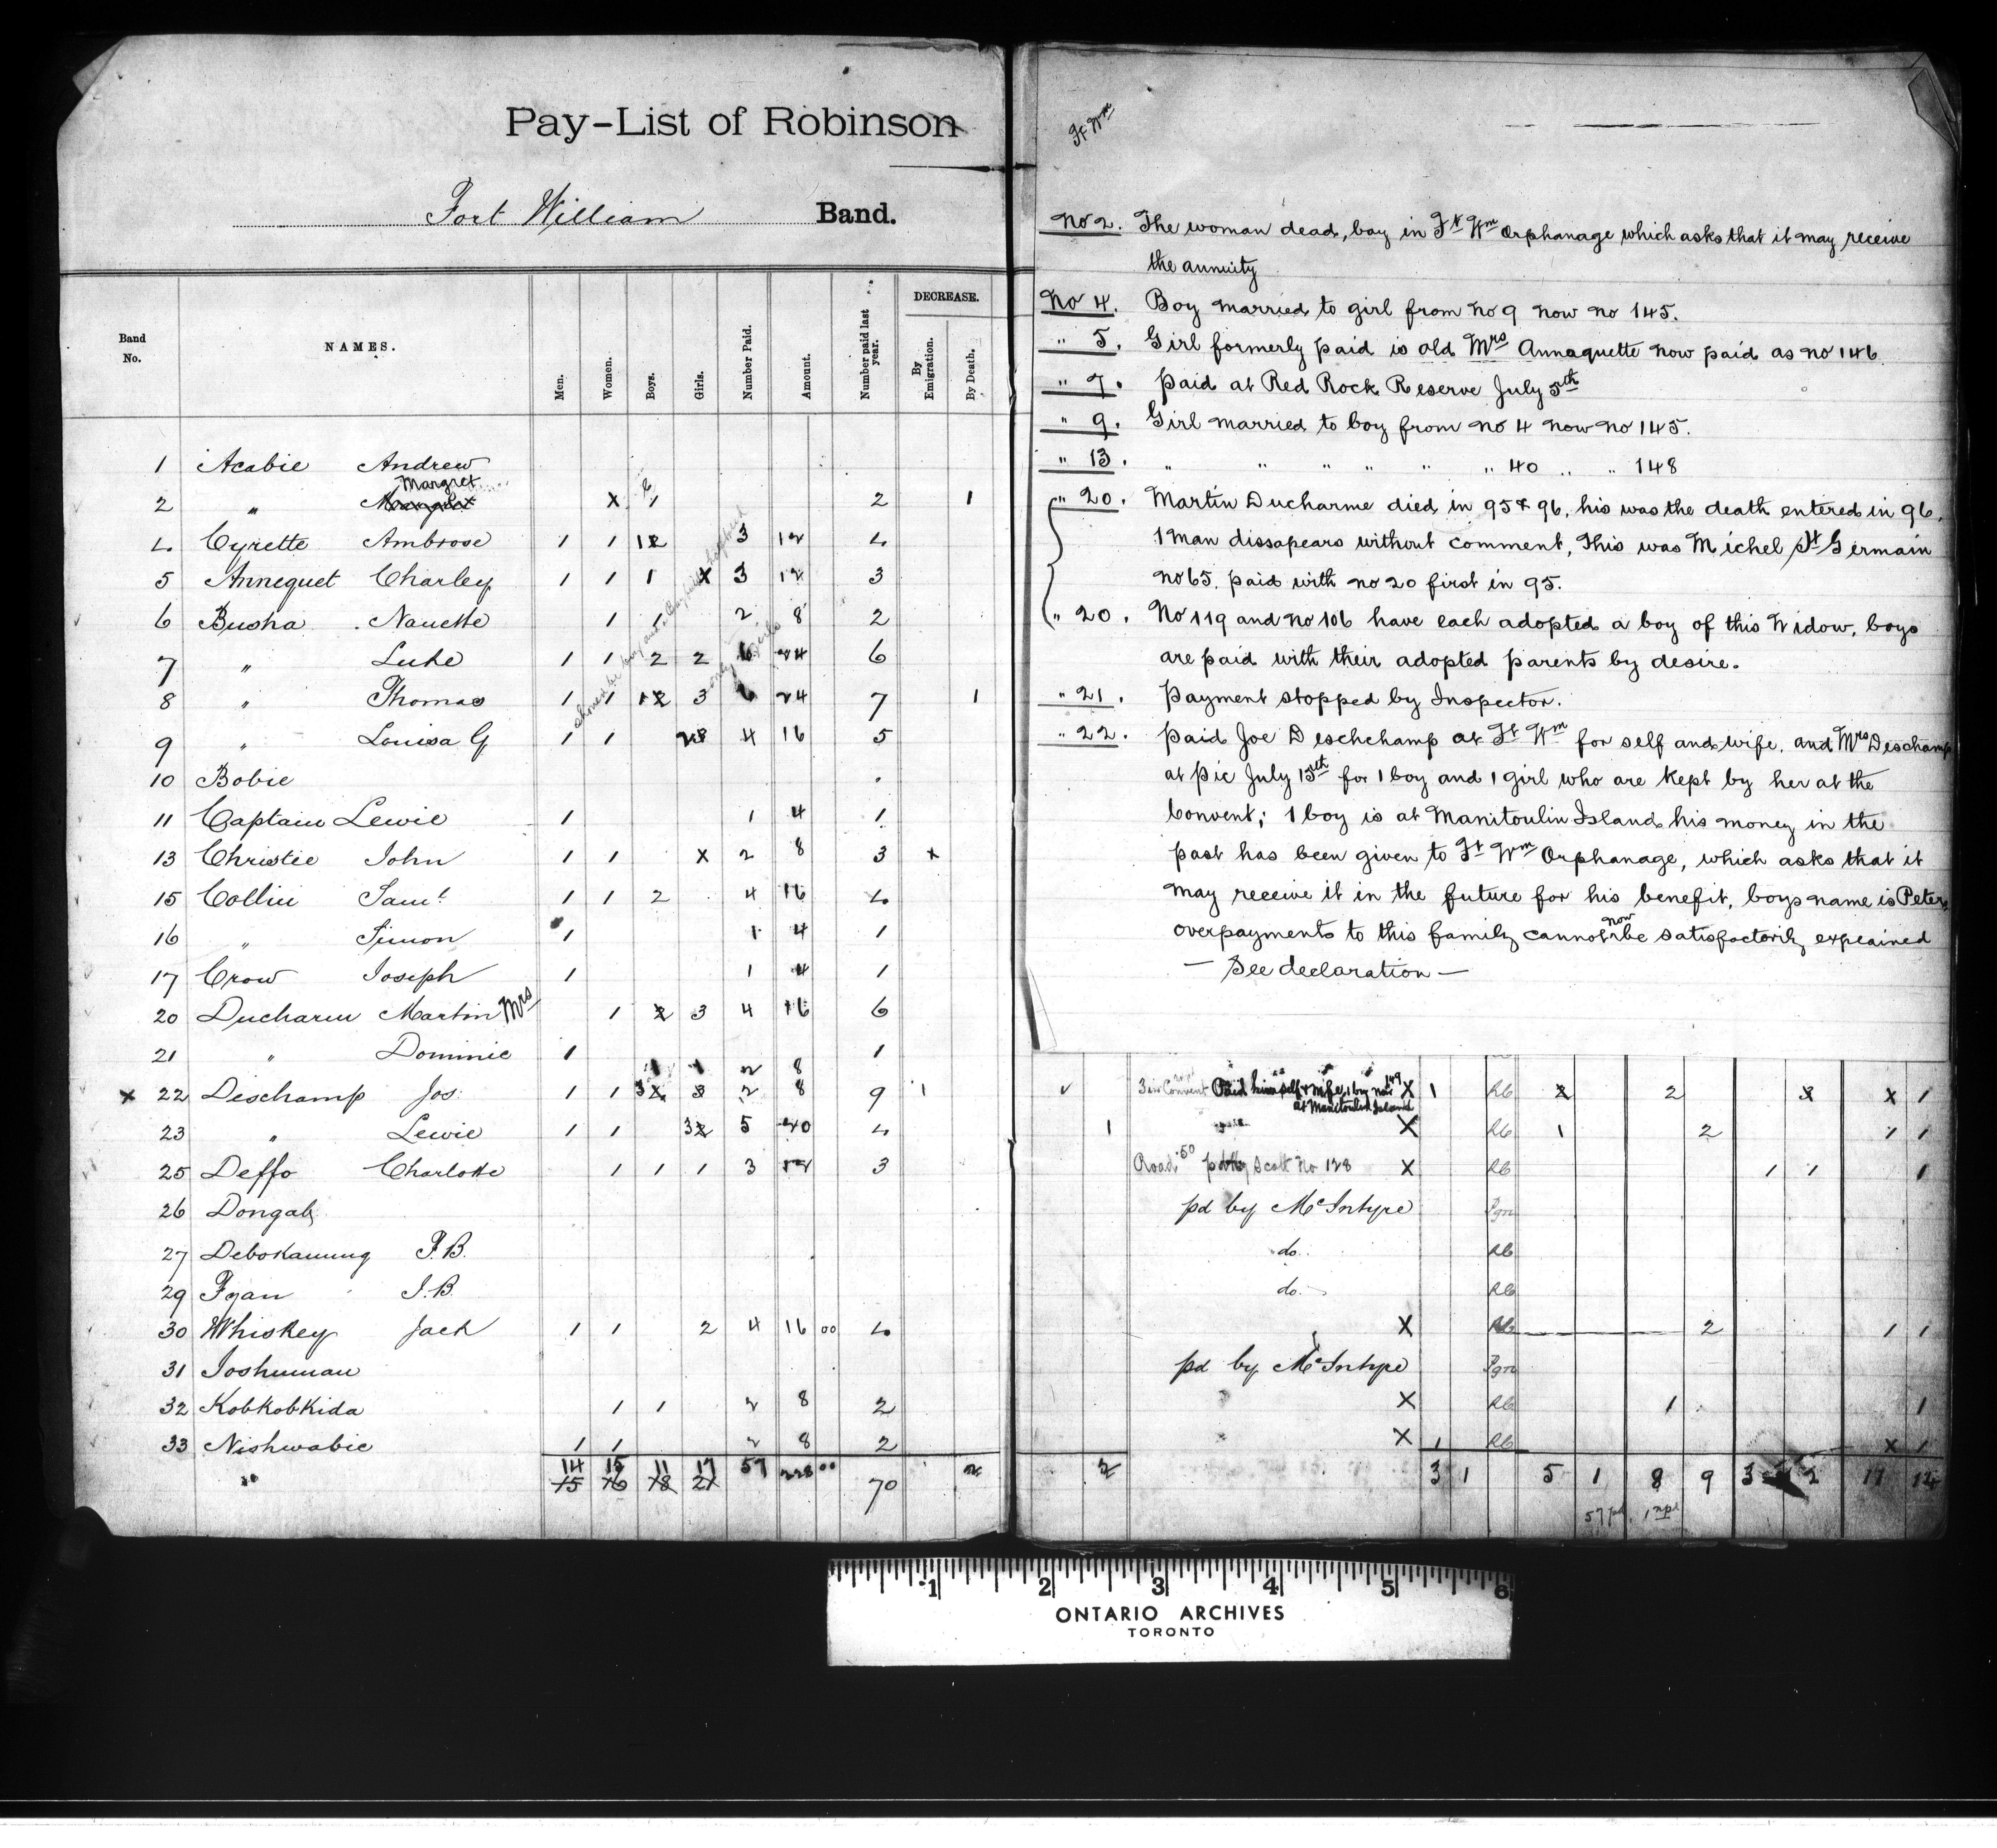 Pay-List of Robinson
Fort William Band.
Band No. NAMES. Men. Women. Boys. Girls. Number Paid. Amount. Number paid last year. DECREASE. By Emigration. By Death.
1 Acabie Andrew
Margret
2 " Margret X 1 2 1
4 Cyrette Ambrose 1 1 12 3 12 4
5 Annequet Charley 1 1 1 X 3 12 3
6 Busha Nanette 1 1 2 8 2
7 " Luke 1 1 2 2 6 24 6
8 " Thomas 1 1 12 3 6 24 7 1
9 " Louisa G 1 1 23 4 16 5
10 Bobie
11 Captain Lewie 1 1 4 1
13 Christie John 1 1 X 2 8 3 x
15 Collin Saml 1 1 2 4 16 4
16 " Simon 1 1 4 1
17 Crow Joseph 1 1 4 1
20 Ducharm Martin Mrs 1 2 3 4 16 6
21 " Dominic 1 1
1 1 2 8
x 22 Deschamp Jos 1 1 3 3 2 8 9 1
23 " Lewie 1 1 32 5 20 4
25 Deffo Charlotte 1 1 1 3 12 3
26 Dongab
27 Debokaunung F.B.
29 Fyan J.B.
30 Whiskey Jack 1 1 2 4 16 00 4
31 Joshuman
32 Kobkobkida 1 1 2 8 2
33 Nishwabie 1 1 2 8 2
14 15 11 17 57 228 00 2
15 16 18 21 70
Ft Wm
No 2. The woman dead, boy in Ft Wm Orphanage which asks that it may receive
the annuity
No 4. Boy married to girl from no 9 now no 145.
" 5. Girl formerly paid is old Mrs Annaquette now paid as no 146
" 7. paid at Red Rock Reserve July 5th
" 9. Girl married to boy from no 4 now no 145.
" 13. " " " " " " 40 " " 148
" 20. Martin Ducharme died in 95 & 96, his was the death entered in 96.
1 man dissapears without comment, This was Michel St Germain
no 65. paid with no 20 first in 95.
" 20. No 119 and no 106 have each adopted a boy of this Widow, boys
are paid with their adopted parents by desire.
" 21. Payment stopped by Inspector.
" 22. paid Joe Deschchamp at Ft Wm for self and wife, and Mrs Deschamp
at Pic July 15th for 1 boy and 1 girl who are kept by her at the
Convent; 1 boy is at Manitoulin Island his money in the
past has been given to Ft Wm Orphanage, which asks that it
may receive it in the future for his benefit, boys name is Peter,
overpayments to this family cannot now be satisfactorily explained
— See declaration —
3 in Convent Paid himself & wife, 1 boy no 149 X 1 Rb 2 2 3 x 1
at Manitoulin Island
1 X Rb 1 2 1 1
Road 50 Scott No 128 X Rb 1 1 1
pd by McIntyre Pgn
do. Rb
do. Rb
X Rb 2 1 1
pd by McIntyre Pgn
X Rb 1 1
X 1 Rb x 1
2 3 1 5 1 8 9 3 2 11 12
57 pd 1 npd
1 2 3 4 5 6
ONTARIO ARCHIVES
TORONTO